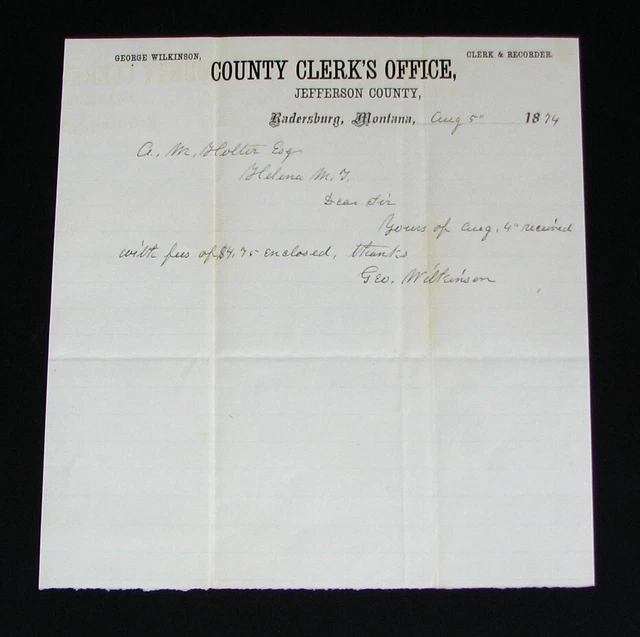 GEORGE WILKINSON, CLERK & RECORDER.
COUNTY CLERK'S OFFICE,
JEFFERSON COUNTY,
Radersburg, Montana, Aug 5" 1874
A. M. Holter Esq
Helena M. T.
Dear Sir
Yours of Aug. 4" received
with fees of $4.75 enclosed, thanks
Geo. Wilkinson